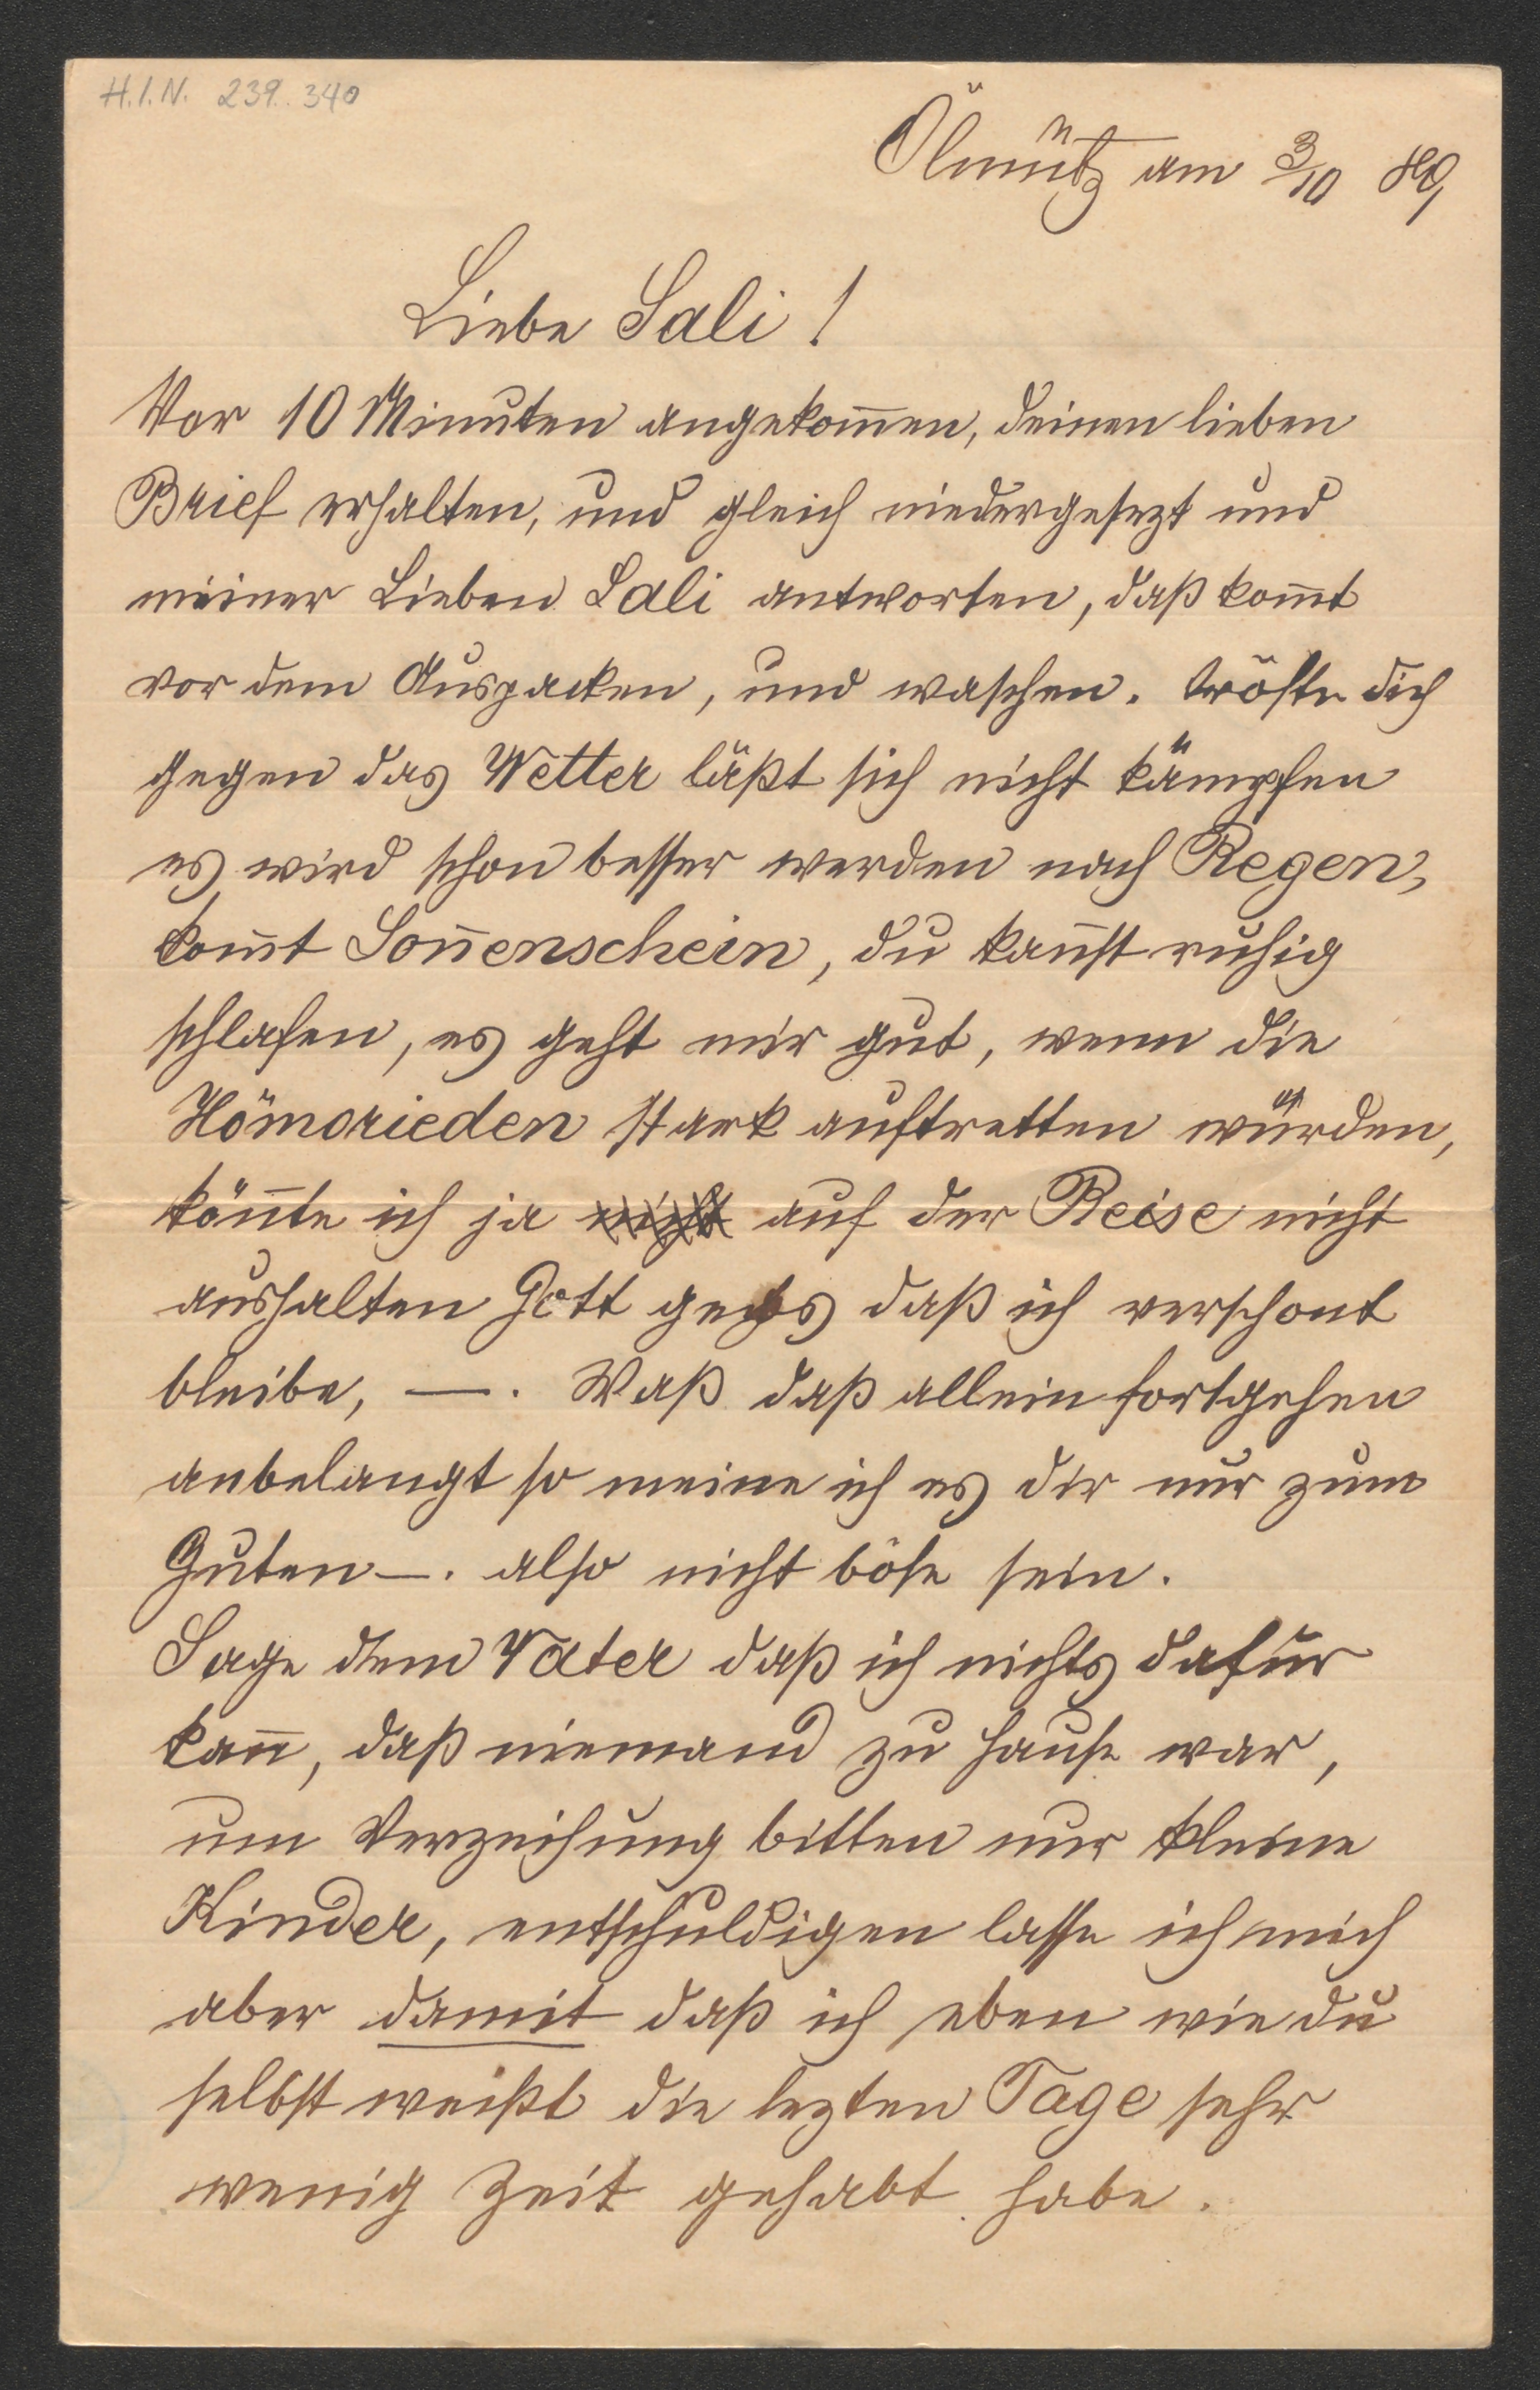 H.I.N. 239.340
Ölmütz am 3/10 89
Liebe Sali!
Vor 10 Minuten angekom̄en, deinen lieben
Brief erhalten, und gleich niedergesezt und
meiner Lieben Sali antworten, daß kom̄t
vor dem Auspacken, und waschen. tröste dich
gegen das Wetter läßt sich nicht kämpfen
es wird schon besser werden nach Regen,
kom̄t Son̄enschein, du kan̄st ruhig
schlafen, es geht mir gut, wenn die
Hömorieden stark auftretten würden,
kön̄te ich ja nicht auf der Reise nicht
aushalten Gott gebs daß ich verschont
bleibe, —. Waß daß allein fortgehen
anbelangt so meine ich es dir nur zum
Guten —. also nicht böse sein.
Sage dem Vater daß ich nichts dafür
kan̄, daß niemand zu Hause war,
um Verzeihung bitten nur kleine
Kinder, entschuldigen lasse ich mich
aber damit daß ich eben wie du
selbst weißt die lezten Tage sehr
wenig Zeit gehabt habe.